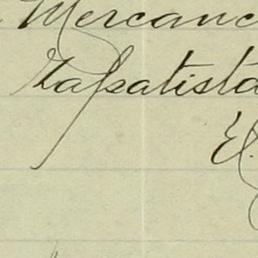 Mercanc
Zapatista
El.